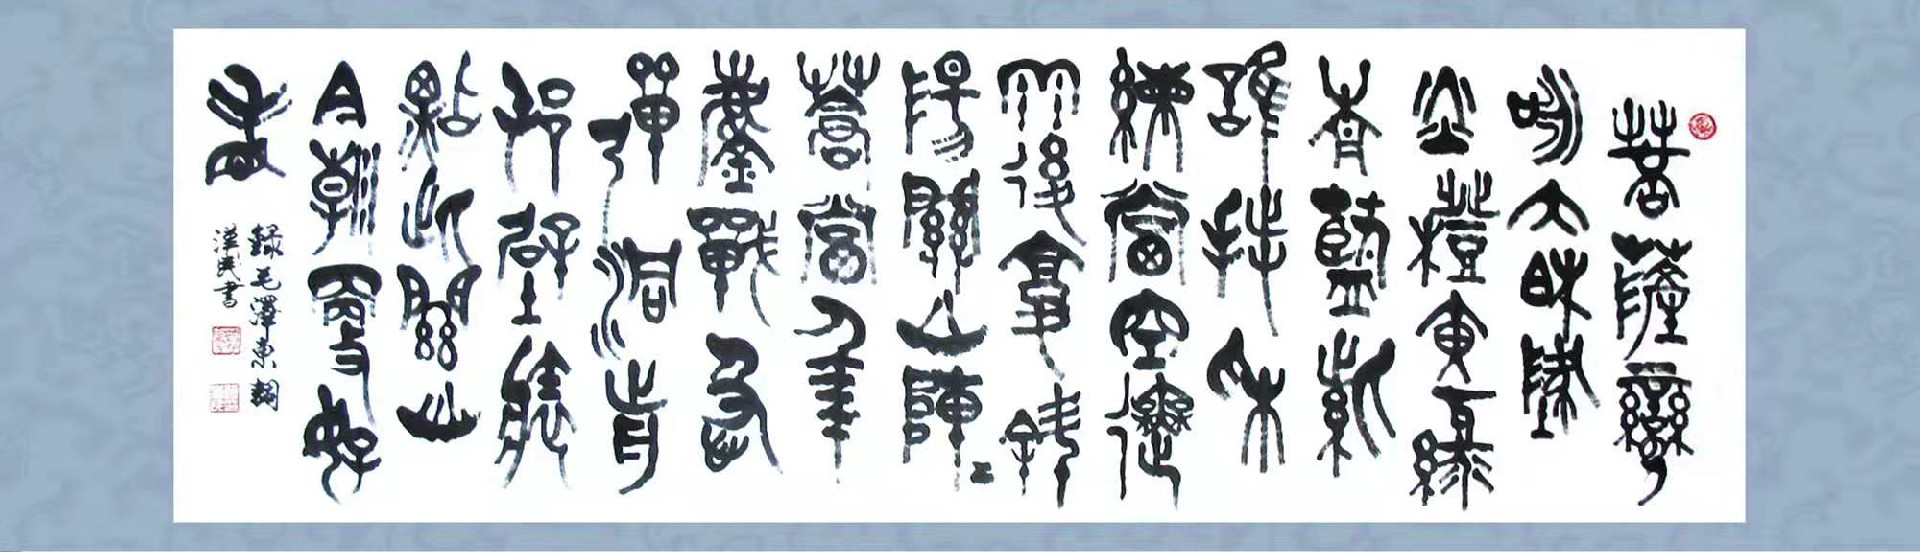 菩薩蠻
詠大柏墬
赤橙黃綠
青藍紫
誰持采
練當空舞
雨後復斜
陽關山陣々
蒼當年
鏖戰急
彈洞前
邨壁裝
點此關山
今朝更好
看
錄毛澤東詞
漢民書